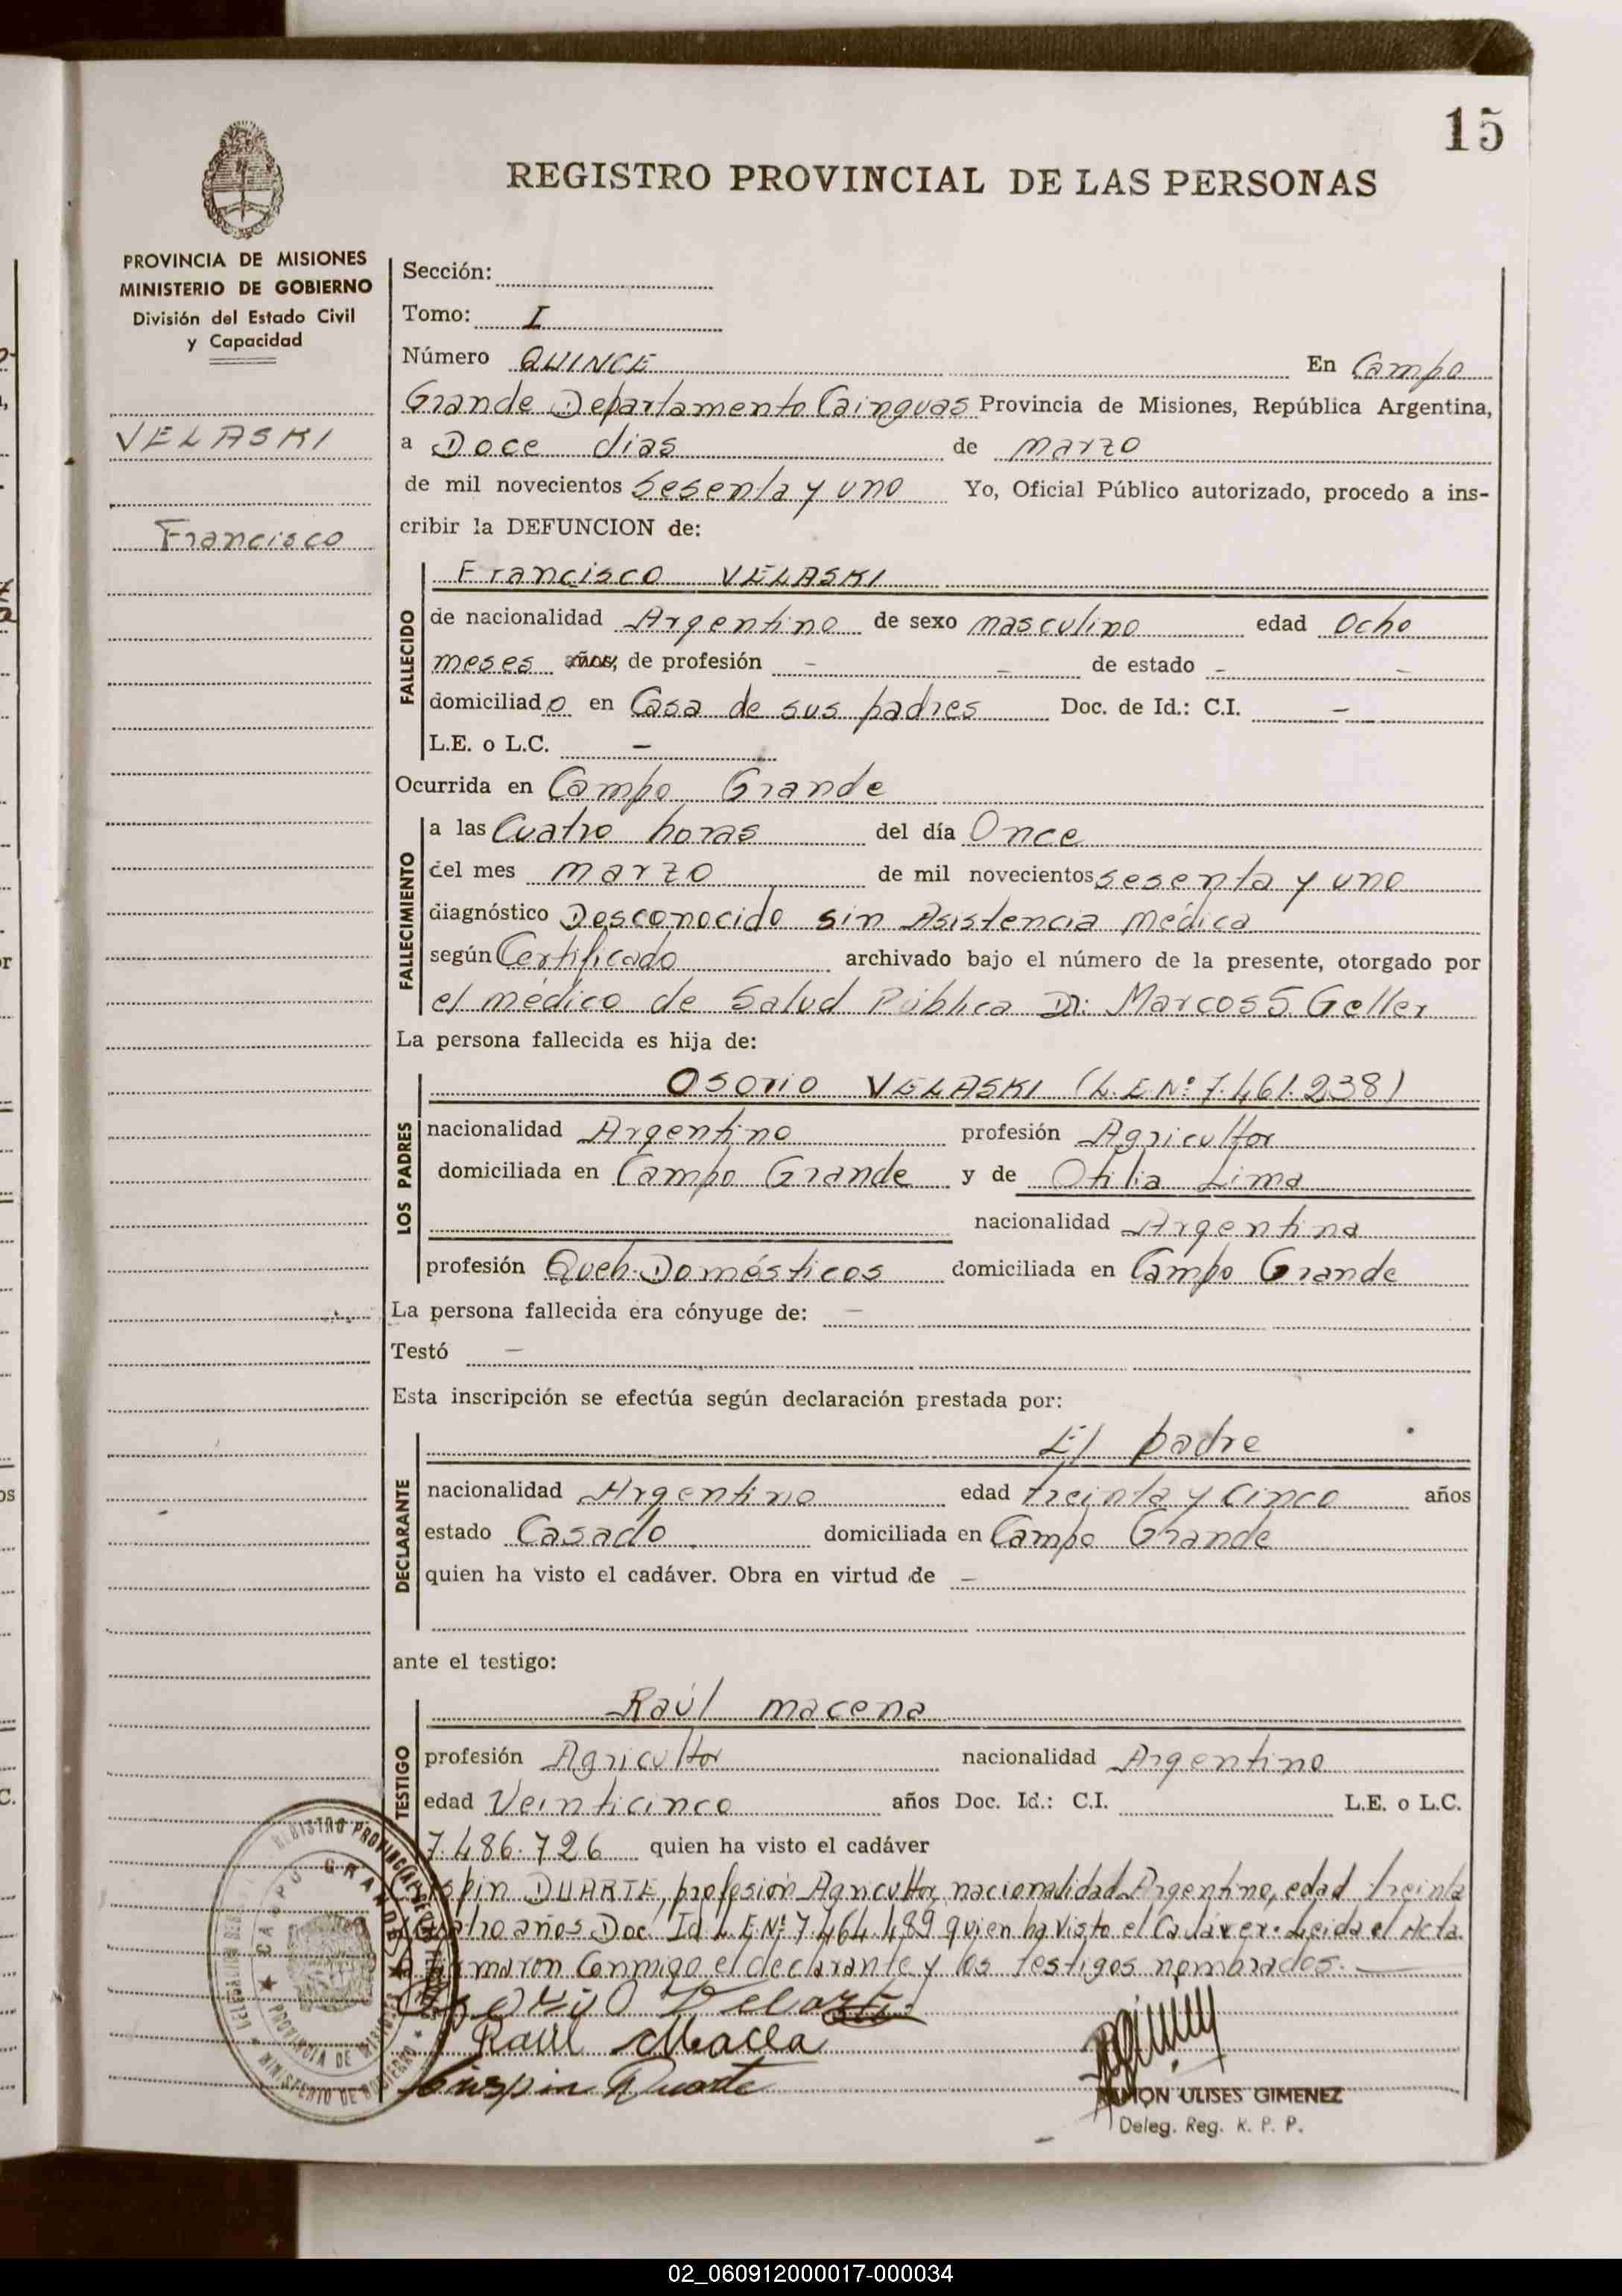 15
REGISTRO PROVINCIAL DE LAS PERSONAS
PROVINCIA DE MISIONES
MINISTERIO DE GOBIERNO
División del Estado Civil
y Capacidad
VELASKI
Francisco
Sección:
Tomo: I
Número QUINCE En Campo
Grande Departamento Cainguas Provincia de Misiones, República Argentina,
a Doce dias de marzo
de mil novecientos Sesenta y uno Yo, Oficial Público autorizado, procedo a ins-
cribir la DEFUNCION de:
FALLECIDO
Francisco VELASKI
de nacionalidad Argentino de sexo masculino edad Ocho
meses años, de profesión - - de estado - -
domiciliado en Casa de sus padres Doc. de Id.: C.I. -
L.E. o L.C. -
Ocurrida en Campo Grande
FALLECIMIENTO
a las Cuatro horas del día Once
del mes marzo de mil novecientos sesenta y uno
diagnóstico Desconocido sin Asistencia médica
según Certificado archivado bajo el número de la presente, otorgado por
el médico de Salud Pública Dr: Marcos S. Geller
La persona fallecida es hija de:
LOS PADRES
Osorio VELASKI (L.E Nº 7.461.238)
nacionalidad Argentino profesión Agricultor
domiciliada en Campo Grande y de Otilia Lima
nacionalidad Argentina
profesión Queh. Domésticos domiciliada en Campo Grande
La persona fallecida era cónyuge de: -
Testó -
Esta inscripción se efectúa según declaración prestada por:
DECLARANTE
El padre
nacionalidad Argentino edad treinta y Cinco años
estado Casado domiciliada en Campo Grande
quien ha visto el cadáver. Obra en virtud de -
ante el testigo:
TESTIGO
Raúl macena
profesión Agricultor nacionalidad Argentino
edad Veinticinco años Doc. Id.: C.I. L.E. o L.C.
7.486.726 quien ha visto el cadáver
Crispin DUARTE, profesión Agricultor, nacionalidad Argentino, edad treinta
y Cuatro años Doc. Id L.E.Nº 7.464.489 quien ha visto el Cadáver. Leida el Acta
firmaron Conmigo el declarante y los testigos nombrados.
Raul Macea
Crispin Duarte
RAMON ULISES GIMENEZ
Deleg. Reg. K. P. P.
REGISTRO PROVINCIAL DE LAS PERSONAS
CAMPO GRANDE
PROVINCIA DE MISIONES
MINISTERIO DE GOBIERNO
02_060912000017-000034